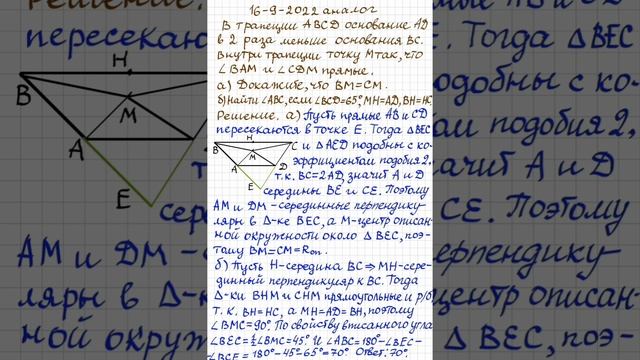 16-9-2022 аналог
В трапеции ABCD основание AD
в 2 раза меньше основания BC.
Внутри трапеции точку M так, что
∠BAM и ∠CDM прямые.
а) Докажите, что BM=CM.
б) найти ∠ABC, если ∠BCD=65°, MH=AD, BH=HC
Решение. а) Пусть прямые AB и CD
пересекаются в точке E. Тогда ∆BEC
и ∆AED подобны с ко-
эффициентом подобия 2,
т.к. BC=2AD, значит A и D
середины BE и CE. Поэтому
AM и DM - серединные перпендику-
ляры в ∆-ке BEC, а M-центр описан-
ной окружности около ∆BEC, поэ-
тому BM=CM=Rоп.
б) Пусть H-середина BC ⇒ MH-сере-
динный перпендикуляр к BC. Тогда
∆-ки BHM и CHM прямоугольные и р/б
т.к. BH=HC, а MH=AD=BH, поэтому
∠BMC=90°. По свойству вписанного угла
∠BEC=½∠BMC=45° и ∠ABC=180°-∠BEC-
-∠BCE=180°-45°-65°=70° Ответ: 70°
H
B
M
C
A
D
E
Решение.
пересекаются
H
B
M
A
E
сере
AM и DM
ляры в ∆-
ной окруж
E. Тогда ∆BEC
подобны с ко-
ом подобия 2,
начит A и D
CE. Поэтому
ерпендику-
центр описан-
∆BEC, поэ-